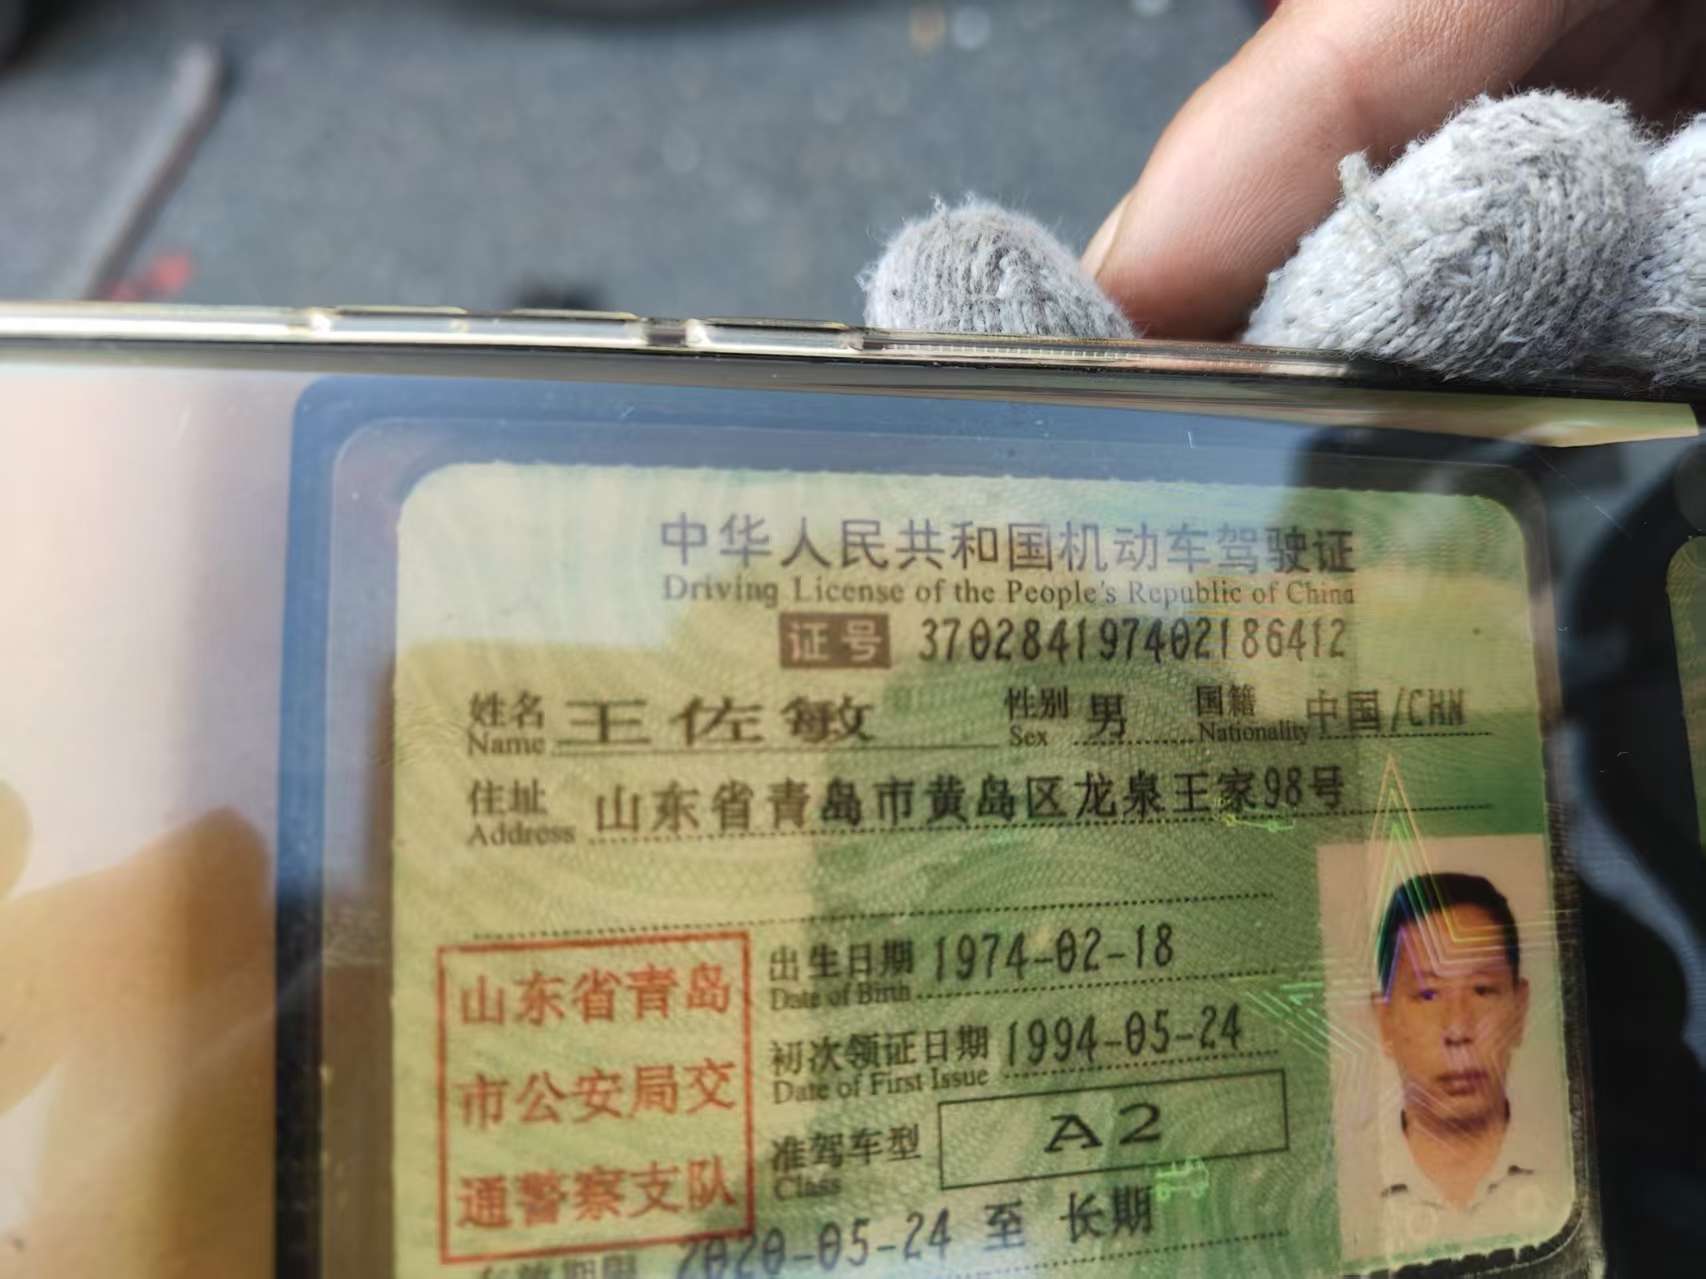 中华人民共和国机动车驾驶证
Driving License of the People's Republic of China
证号 370284197402186412
姓名 王佐敏 性别 男 国籍 中国/CHN
Name Sex Nationality
住址 山东省青岛市黄岛区龙泉王家98号
Address
山东省青岛
市公安局交
通警察支队
出生日期 1974-02-18
Date of Birth
初次领证日期 1994-05-24
Date of First Issue
准驾车型 A2
Class
2020-05-24 至 长期